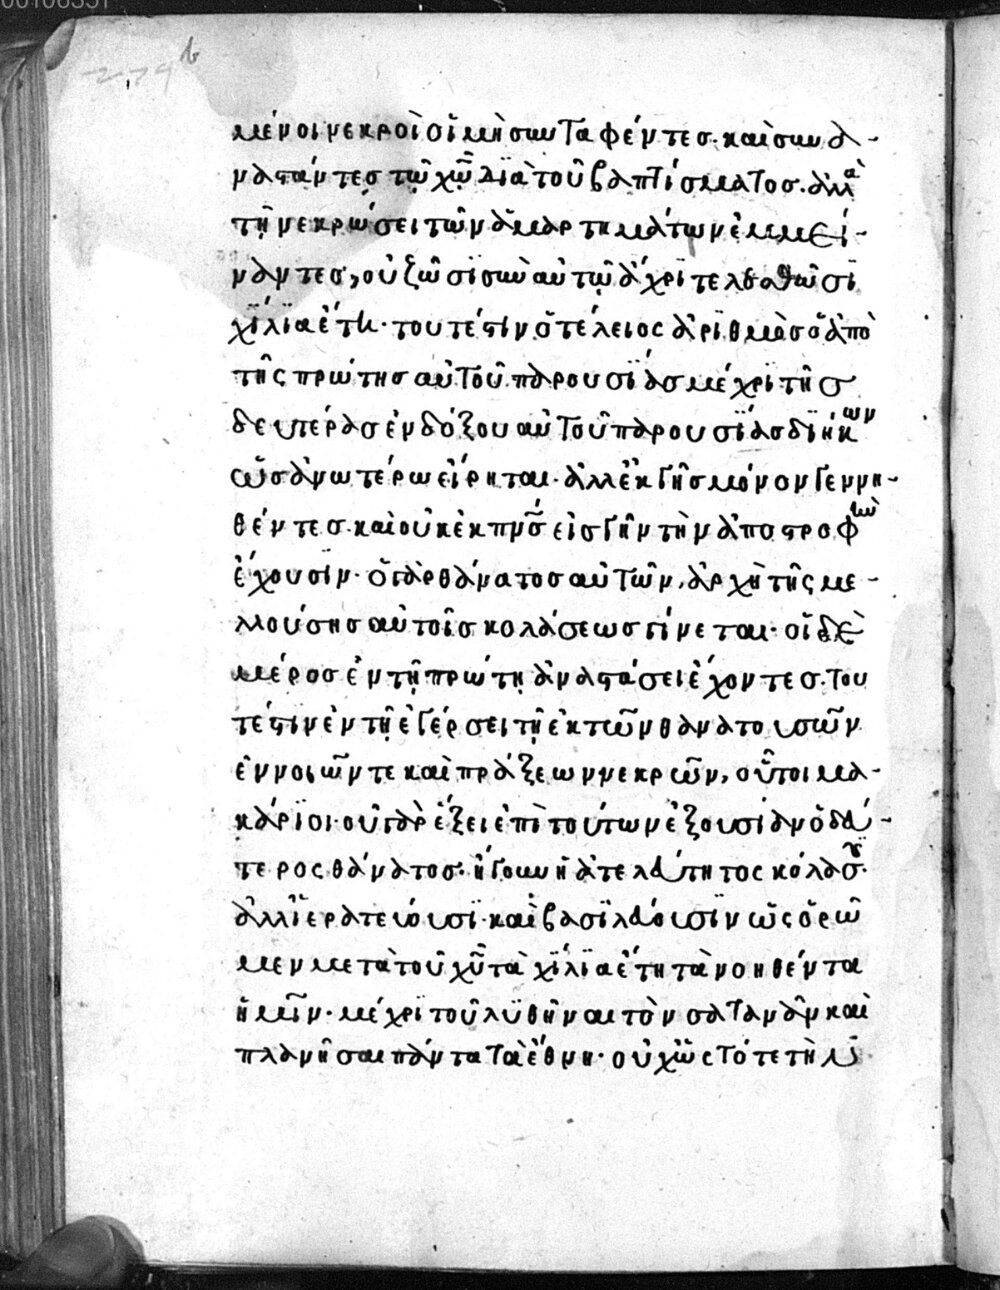 μένοι νεκροὶ οἱ μὴ συνταφέντες. καὶ συνα-
ναστάντες τῷ χῶ διὰ τοῦ βαπτίσματος. ἀλλὰ
τῇ νεκρώσει τῶν ἁμαρτημάτων ἐμμεί-
ναντες, οὐ ζῶσι σὺν αὐτῷ ἄχρι τελεσθῶσι
χίλια έτη. τουτέστιν ὁ τέλειος ἀριθμὸς ὁ ἀπὸ
τῆς πρώτης αὐτοῦ παρουσίας μέχρι τῆς
δευτέρας ἐνδόξου αὐτοῦ παρουσίας διήκων
ὡς ἀνωτέρω εἴρηται. ἀλλ ἐκ γῆς μόνον γεννη-
θέντες. καὶ οὐκ ἐκ πνς εἰς γῆν τὴν ἀποστροφὴν
ἔχουσιν. ὁ γὰρ θάνατος αὐτῶν, ἀρχὴ τῆς με-
λλούσης αὐτοῖς κολάσεως γίνεται. οἱ δὲ
μέρος ἐν τῇ πρώτῃ ἀναστάσει ἔχοντες. του
τέστιν ἐν τῇ ἐγέρσει τῇ ἐκ τῶν θανατουσῶν
ἐννοιῶν τε καὶ πράξεων νεκρῶν, οὗτοι μα-
κάριοι. οὐ γὰρ ἕξει ἐπὶ τούτων ἐξουσίαν ὁ δεύ-
τερος θάνατος. ἤγουν ἡ ἀτελεύτητος κόλασις.
ἀλλ ἱερατεύουσι. καὶ βασιλεύουσιν ὡς ὁρῶ
μεν μετὰ τοῦ χῦ τὰ χίλια ἔτη τὰ νοηθέντα
ἡμῖν. μέχρι τοῦ λυθῆναι τὸν σατανᾶν καὶ
πλανῆσαι πάντα τὰ ἔθνη. οὐχ ὡς τότε τῆς